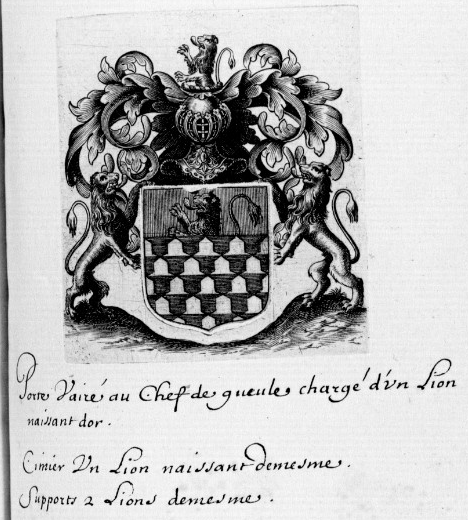 Porte Vairé au Chef de gueule chargé d'vn Lion
naissant dor.
Cimier Vn Lion naissant demesme.
Supports 2 Lions demesme.